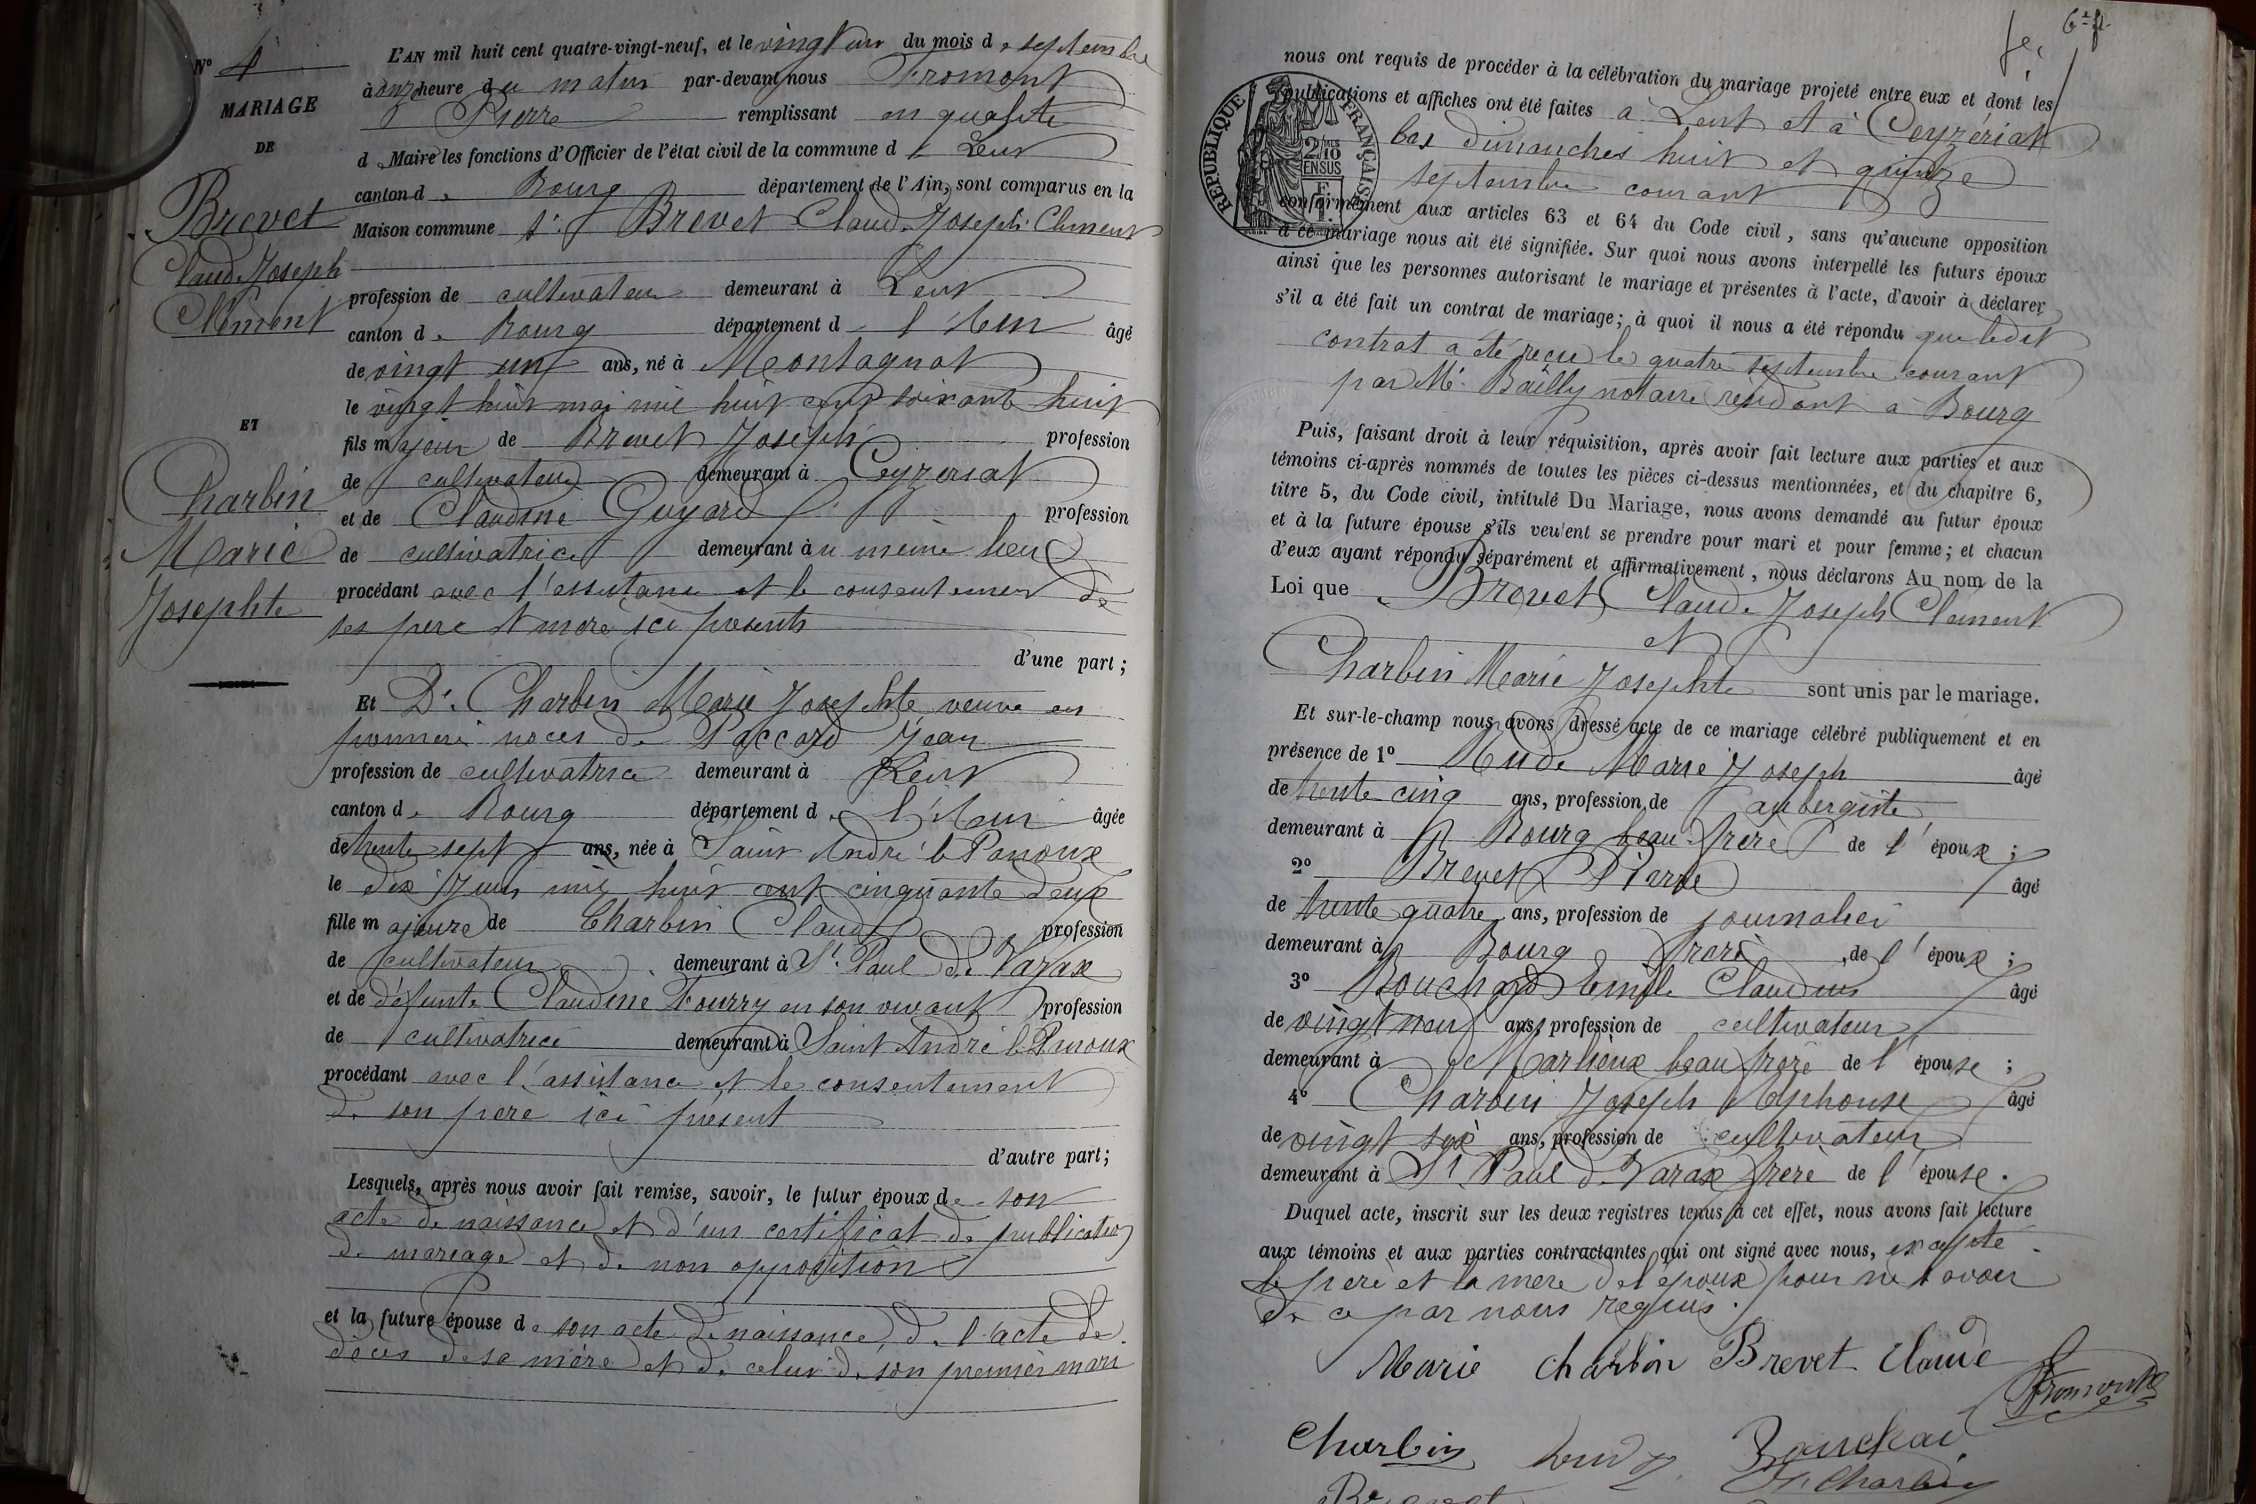 N° 4
MARIAGE
DE
Brevet
Claude Joseph
Clément
ET
Charbin
Marie
Josephte
L'AN mil huit cent quatre-vingt-neuf, et le vingt un du mois de septembre
à onze heure du matin par-devant nous Fromont
Pierre remplissant en qualité
de Maire les fonctions d'Officier de l'état civil de la commune de Lent
canton de Bourg département de l'Ain, sont comparus en la
Maison commune Sr. Brevet Claude Joseph Clément
profession de cultivateur demeurant à Lent
canton de Bourg département de l'Ain âgé
de vingt un ans, né à Montagnat
le vingt huit mai mil huit cent soixante huit
fils majeur de Brevet Joseph profession
de cultivateur demeurant à Ceyzeriat
et de Claudine Guyard profession
de cultivatrice demeurant au même lieu
procédant avec l'assistance et le consentement de
ses père et mère ici présents
d'une part;
Et De. Charbin Marie Josephte veuve en
première noces de Paccard Jean
profession de cultivatrice demeurant à Lent
canton de Bourg département de l'Ain âgée
de trente sept ans, née à Saint André le Panoux
le dix Juin mil huit cent cinquante deux
fille majeure de Charbin Claude profession
de cultivateur demeurant à St. Paul de Varax
et de défunte Claudine Fourry en son vivant profession
de cultivatrice demeurant à Saint André le Panoux
procédant avec l'assistance et le consentement
de son père ici présent
d'autre part;
Lesquels, après nous avoir fait remise, savoir, le futur époux de son
acte de naissance et d'un certificat de publication
de mariage et de non opposition
et la future épouse de son acte de naissance, de l'acte de
décès de sa mère et de celui de son premier mari
6e f
nous ont requis de procéder à la célébration du mariage projeté entre eux et dont les
publications et affiches ont été faites à Lent et à Ceyzériat
les dimanches huit et quinze
septembre courant
RÉPUBLIQUE FRANÇAISE
2/10
EN SUS
conformément aux articles 63 et 64 du Code civil, sans qu'aucune opposition
à ce mariage nous ait été signifiée. Sur quoi nous avons interpellé les futurs époux
ainsi que les personnes autorisant le mariage et présentes à l'acte, d'avoir à déclarer
s'il a été fait un contrat de mariage; à quoi il nous a été répondu que ledit
contrat a été reçu le quatre septembre courant
par Me. Bailly notaire résidant à Bourg
Puis, faisant droit à leur réquisition, après avoir fait lecture aux parties et aux
témoins ci-après nommés de toutes les pièces ci-dessus mentionnées, et du chapitre 6,
titre 5, du Code civil, intitulé Du Mariage, nous avons demandé au futur époux
et à la future épouse s'ils veulent se prendre pour mari et pour femme; et chacun
d'eux ayant répondu séparément et affirmativement, nous déclarons Au nom de la
Loi que Brevet Claude Joseph Clément
et
Charbin Marie Josephte sont unis par le mariage.
Et sur-le-champ nous avons dressé acte de ce mariage célébré publiquement et en
présence de 1° Marie Joseph âgé
de trente cinq ans, profession de aubergiste
demeurant à Bourg beau-frère de l'époux;
2° Brevet Pierre âgé
de trente quatre ans, profession de journalier
demeurant à Bourg frère de l'époux;
3° Bouchard Claudius âgé
de vingt neuf ans, profession de cultivateur
demeurant à de Marlieux beau frère de l'épouse;
4° Charbin Joseph Alphonse âgé
de vingt six ans, profession de cultivateur
demeurant à St Paul de Varax frère de l'épouse.
Duquel acte, inscrit sur les deux registres tenus à cet effet, nous avons fait lecture
aux témoins et aux parties contractantes qui ont signé avec nous, excepté
le père et la mère de l'époux pour ne savoir
de ce par nous requis.
Marie Charbin Brevet Claude
Fromont
Charbin Bouchard
Charbin
Brevet